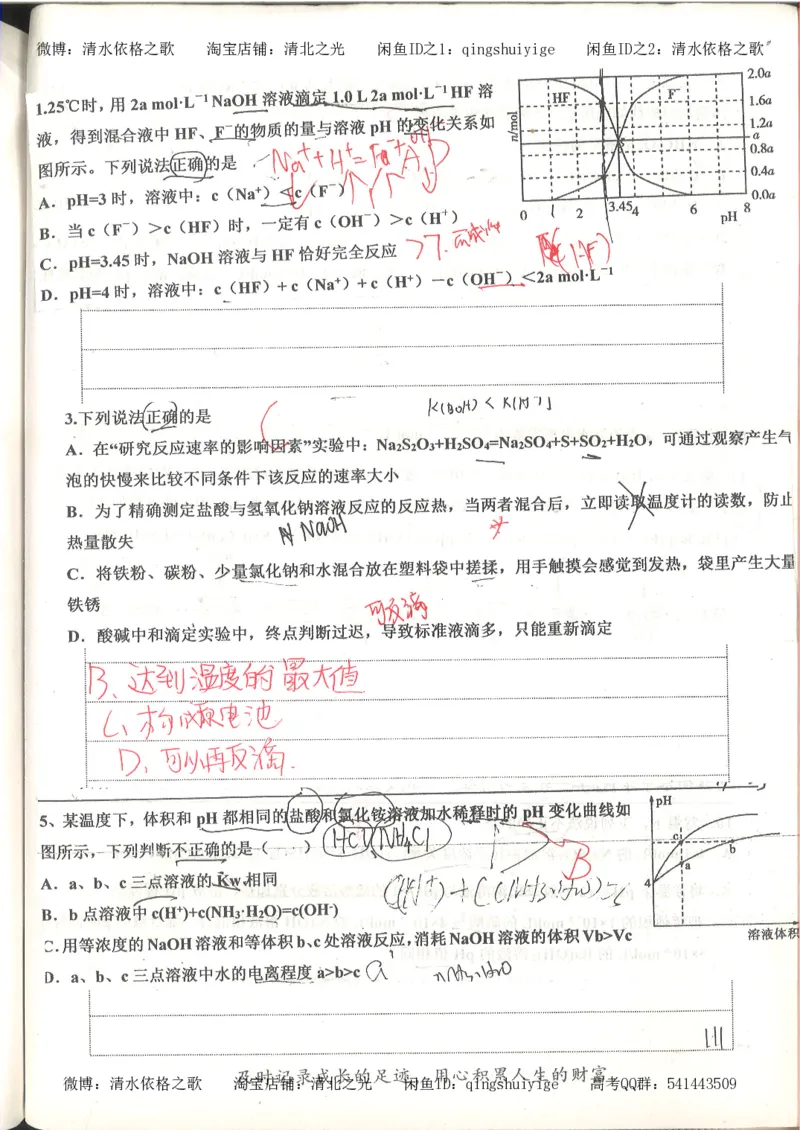 微博：清水依格之歌 淘宝店铺：清北之光 闲鱼ID之1：qingshuiyige 闲鱼ID之2：清水依格之歌
1.25℃时，用 2a mol·L⁻¹ NaOH 溶液滴定 1.0 L 2a mol·L⁻¹ HF 溶
液，得到混合液中 HF、F⁻的物质的量与溶液 pH 的变化关系如
图所示。下列说法正确的是
A．pH=3 时，溶液中：c（Na⁺）＜c（F⁻）
B．当 c（F⁻）＞c（HF）时，一定有 c（OH⁻）＞c（H⁺）
C．pH=3.45 时，NaOH 溶液与 HF 恰好完全反应
D．pH=4 时，溶液中：c（HF）＋c（Na⁺）＋c（H⁺）－c（OH⁻）＜2a mol·L⁻¹
n/mol
HF
F⁻
2.0a
1.6a
1.2a
a
0.8a
0.4a
0.0a
0 1 2 3.45 4 6 8
pH
>7.
K(BOH) <
3.下列说法正确的是
A．在“研究反应速率的影响因素”实验中：Na₂S₂O₃+H₂SO₄=Na₂SO₄+S+SO₂+H₂O，可通过观察产生气
泡的快慢来比较不同条件下该反应的速率大小
B．为了精确测定盐酸与氢氧化钠溶液反应的反应热，当两者混合后，立即读取温度计的读数，防止
热量散失
NaOH
C．将铁粉、碳粉、少量氯化钠和水混合放在塑料袋中搓揉，用手触摸会感觉到发热，袋里产生大量
铁锈
可反滴
D．酸碱中和滴定实验中，终点判断过迟，导致标准液滴多，只能重新滴定
B、达到温度的最大值
C、构成原电池
D、可以再反滴.
5、某温度下，体积和 pH 都相同的盐酸和氯化铵溶液加水稀释时的 pH 变化曲线如
图所示，下列判断不正确的是（ ）
HCl NH₄Cl
B
A．a、b、c 三点溶液的 Kw 相同
B．b 点溶液中 c(H⁺)+c(NH₃·H₂O)=c(OH⁻)
C．用等浓度的 NaOH 溶液和等体积 b、c 处溶液反应，消耗 NaOH 溶液的体积 Vb>Vc
D．a、b、c 三点溶液中水的电离程度 a>b>c
pH
c
b
a
4
溶液体积
及时记录成长的足迹 用心积累人生的财富
微博：清水依格之歌 淘宝店铺：清北之光 闲鱼ID：qingshuiyige 高考QQ群：541443509